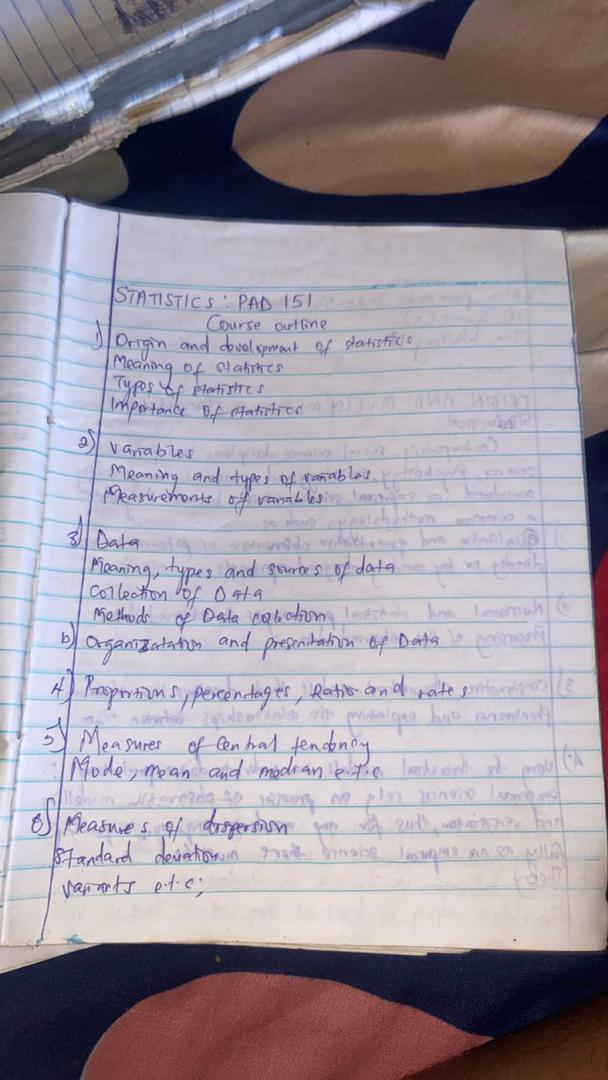 STATISTICS: PAD 151
Course outline
1) Origin and development of statistics
Meaning of statistics
Types of statistics
Importance of statistics
2) variables
Meaning and types of variables
Measurements of variables
3) Data
Meaning, types and sources of data
Collection of Data
Methods of Data collection
b) Organizatation and presentation of Data
4) Proportions, percentages, Ratio and rates
5) Measures of Central tendency
Mode, mean and median e.t.c
6) Measures of dispersion
Standard deviation
variants e.t.c;